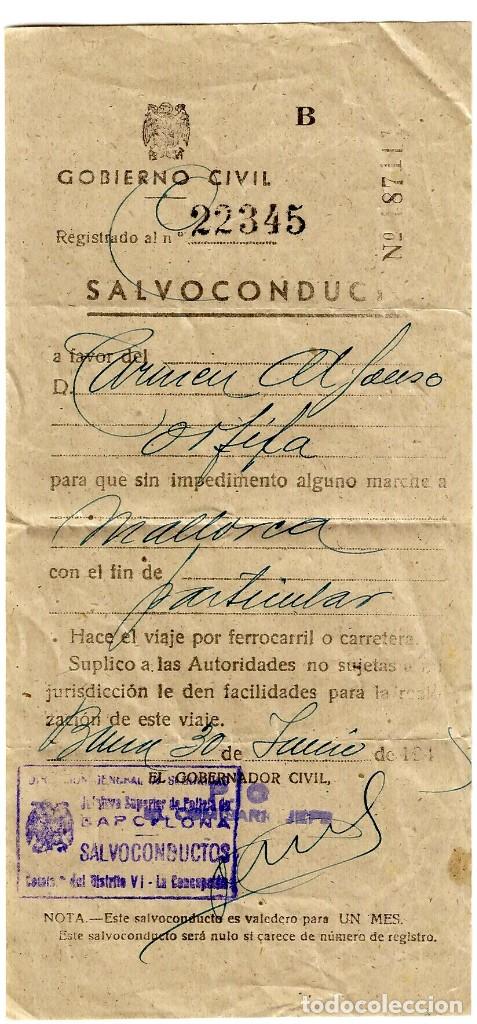 B
GOBIERNO CIVIL
Registrado al n.º 22345
Nº 87111
SALVOCONDUC
a favor del
D. Carmen Alfonso
para que sin impedimento alguno marche a
Mallorca
con el fin de
particular
Hace el viaje por ferrocarril o carretera.
Suplico a las Autoridades no sujetas a mi
jurisdicción le den facilidades para la reali-
zación de este viaje.
Barna 30 de Junio de 194
EL GOBERNADOR CIVIL,
P. O.
EL COMISARIO JEFE
DIRECCION GENERAL DE SEGURIDAD
Jefatura Superior de Policía de
BARCELONA
SALVOCONDUCTOS
Comis.ª del Distrito VI - La Concepción
NOTA.—Este salvoconducto es valedero para UN MES.
Este salvoconducto será nulo si carece de número de registro.
todocoleccion